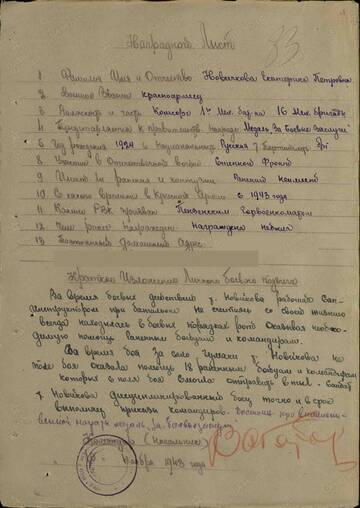 Наградной Лист
33
1 Фамилия Имя и Отчество Новичкова Екатерина Петровна
2 Военное Звание красноармеец
3 Должность и часть 1го Мех. бат-на 16 Мех. бригады
4 Представляется к правительств. награде Медаль За Боевые Заслуги
6 Год рождения 1924 Национальность Русская 7 Партийность
8 Участие в Отечественной войне Степной Фронт
9 Имеет ли ранения и контузии Ранений не имеет
10 С какого времени в Красной Армии с 1943 года
11 Каким РВК призван Пензенским Горвоенкоматом
12 Чем ранее награжден награждена не была
13 Постоянный домашний Адрес
Краткое Изложение Личного боевого подвига
Во время боевых действий т. Новичкова работая Сан-
инструктором при батальоне не считаясь со своей жизнью
всегда находилась в боевых порядках рот оказывая необхо-
димую помощь раненным бойцам и командирам.
Во время боя за село т. Новичкова на
поле боя оказала помощь 18 раненным бойцам и командирам
которых с поля боя смогла отправить в тыл.
т. Новичкова дисциплинированный боец точно и в срок
выполняет приказы командиров. Достойна
награды медаль За боевые заслуги
Командир (начальник)
Ноября 1943 года